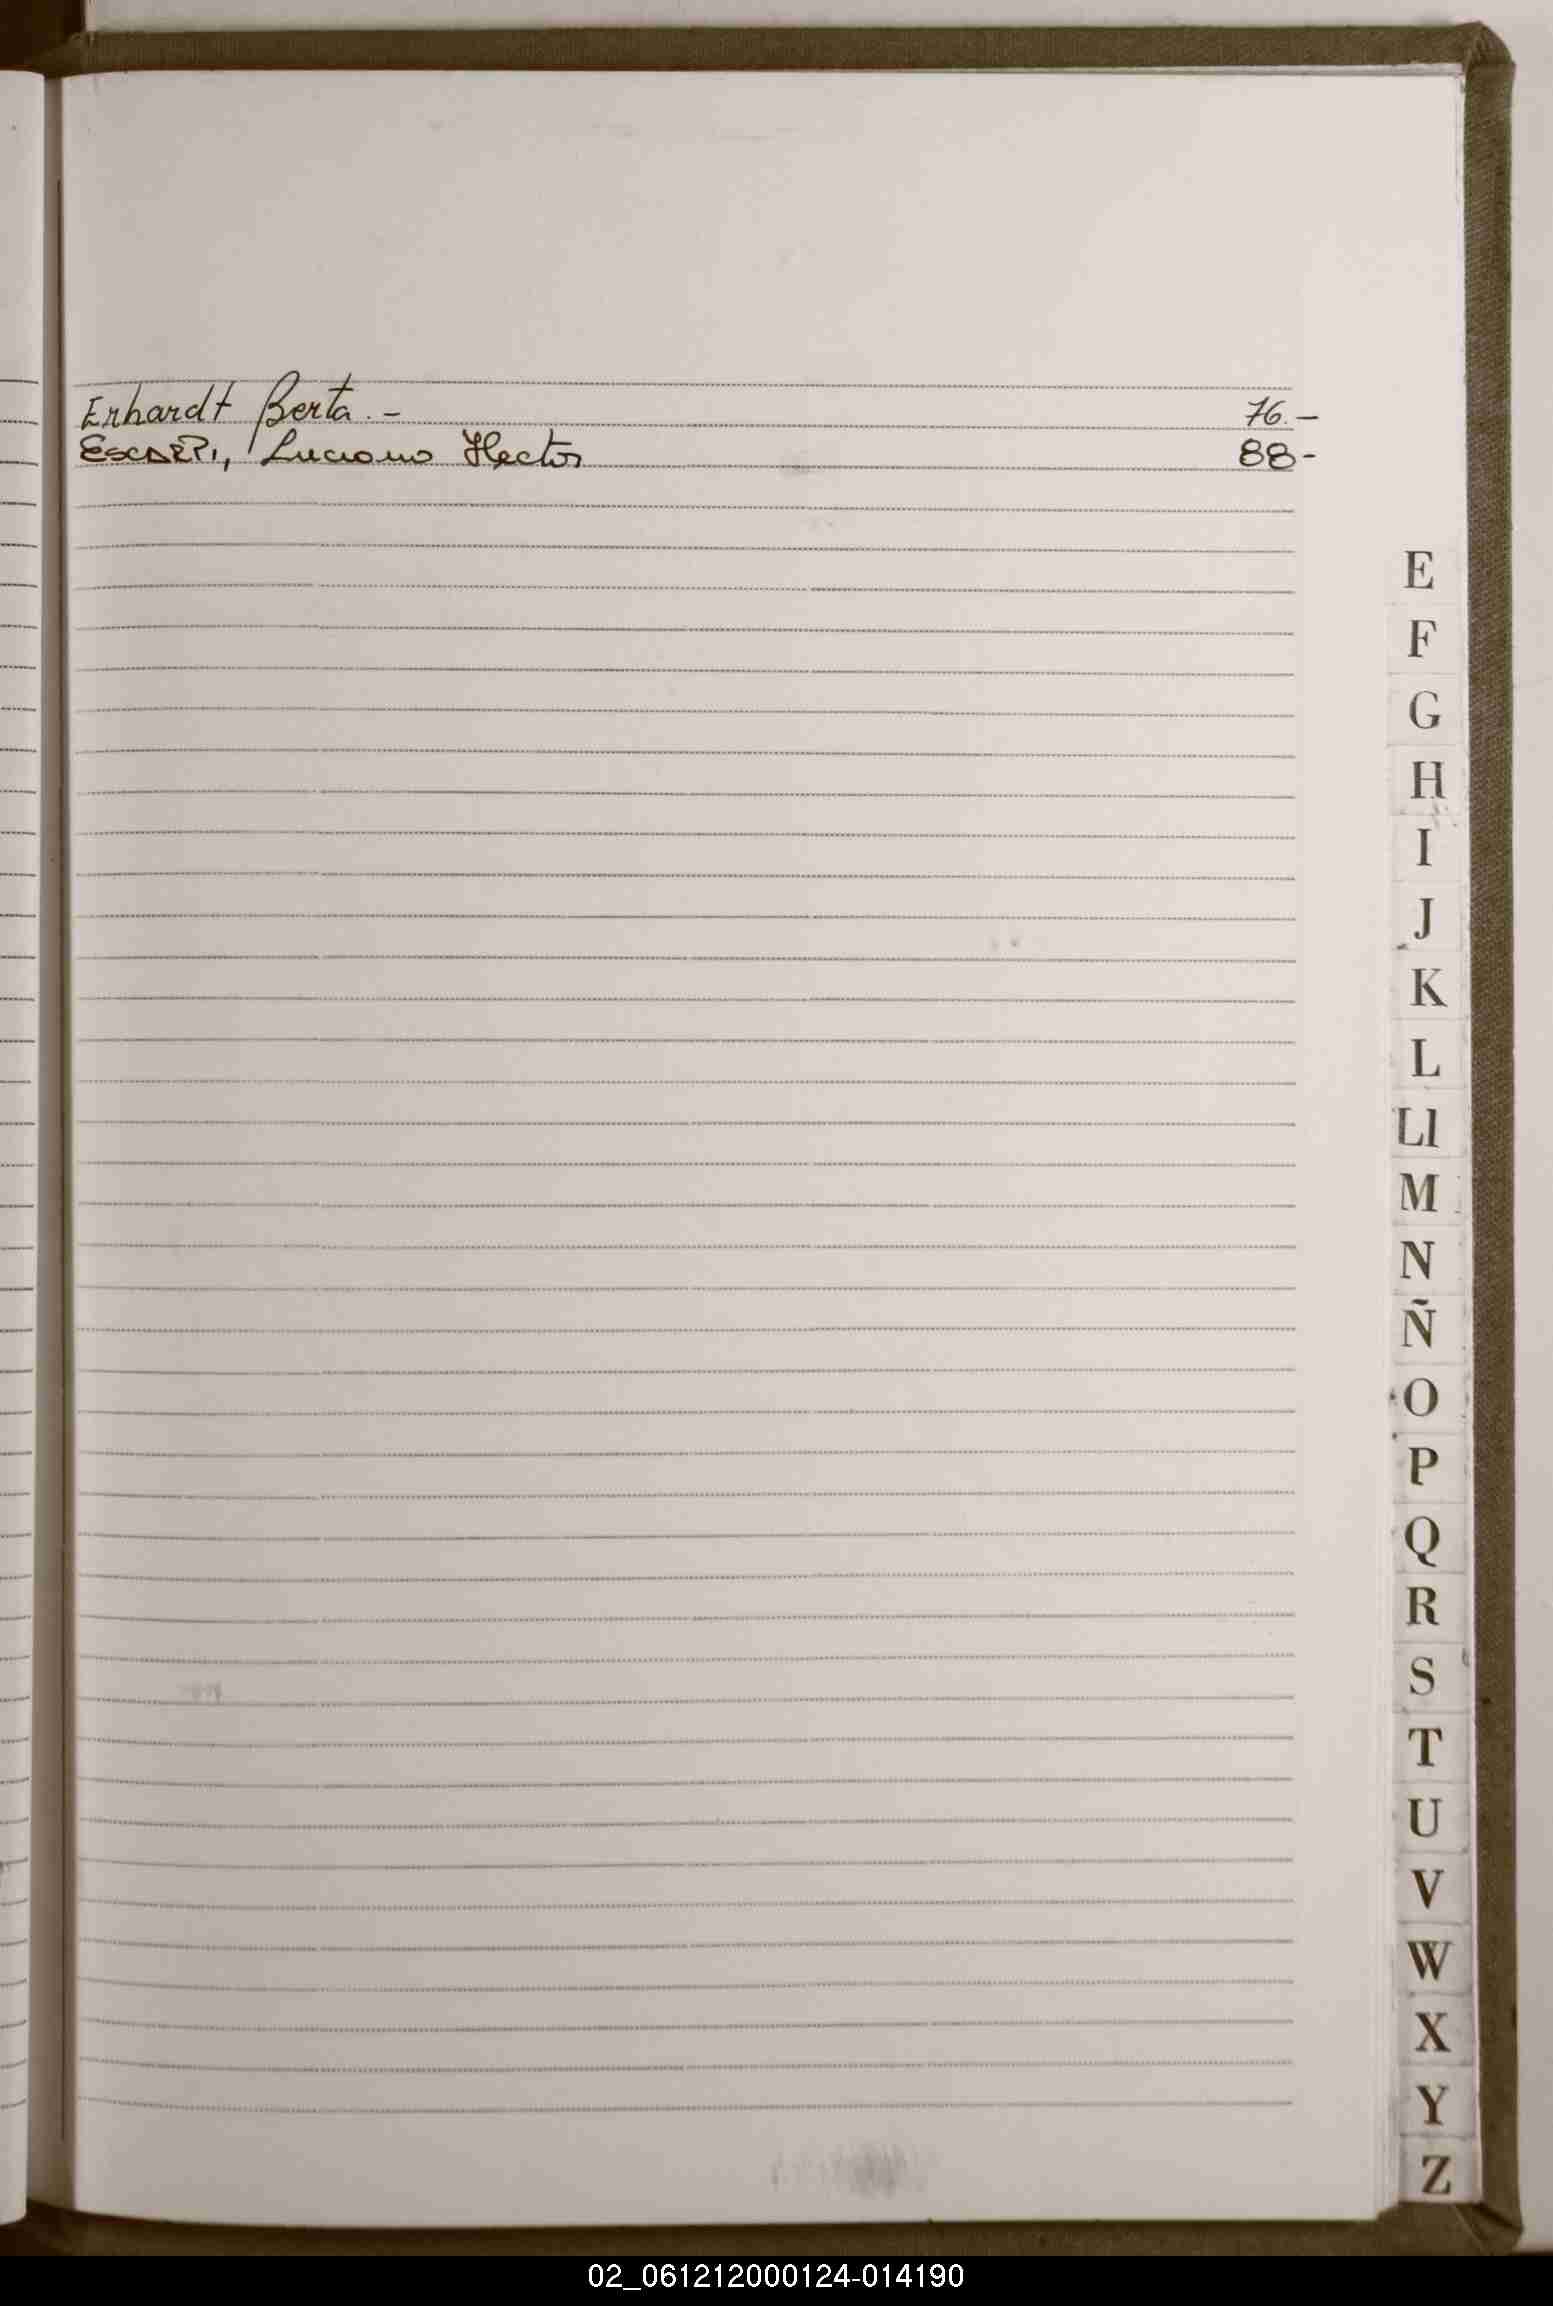 Erhardt Berta.- 76.-
Luciano Hector 88-
E
F
G
H
I
J
K
L
Ll
M
N
Ñ
O
P
Q
R
S
T
U
V
W
X
Y
Z
02_061212000124-014190